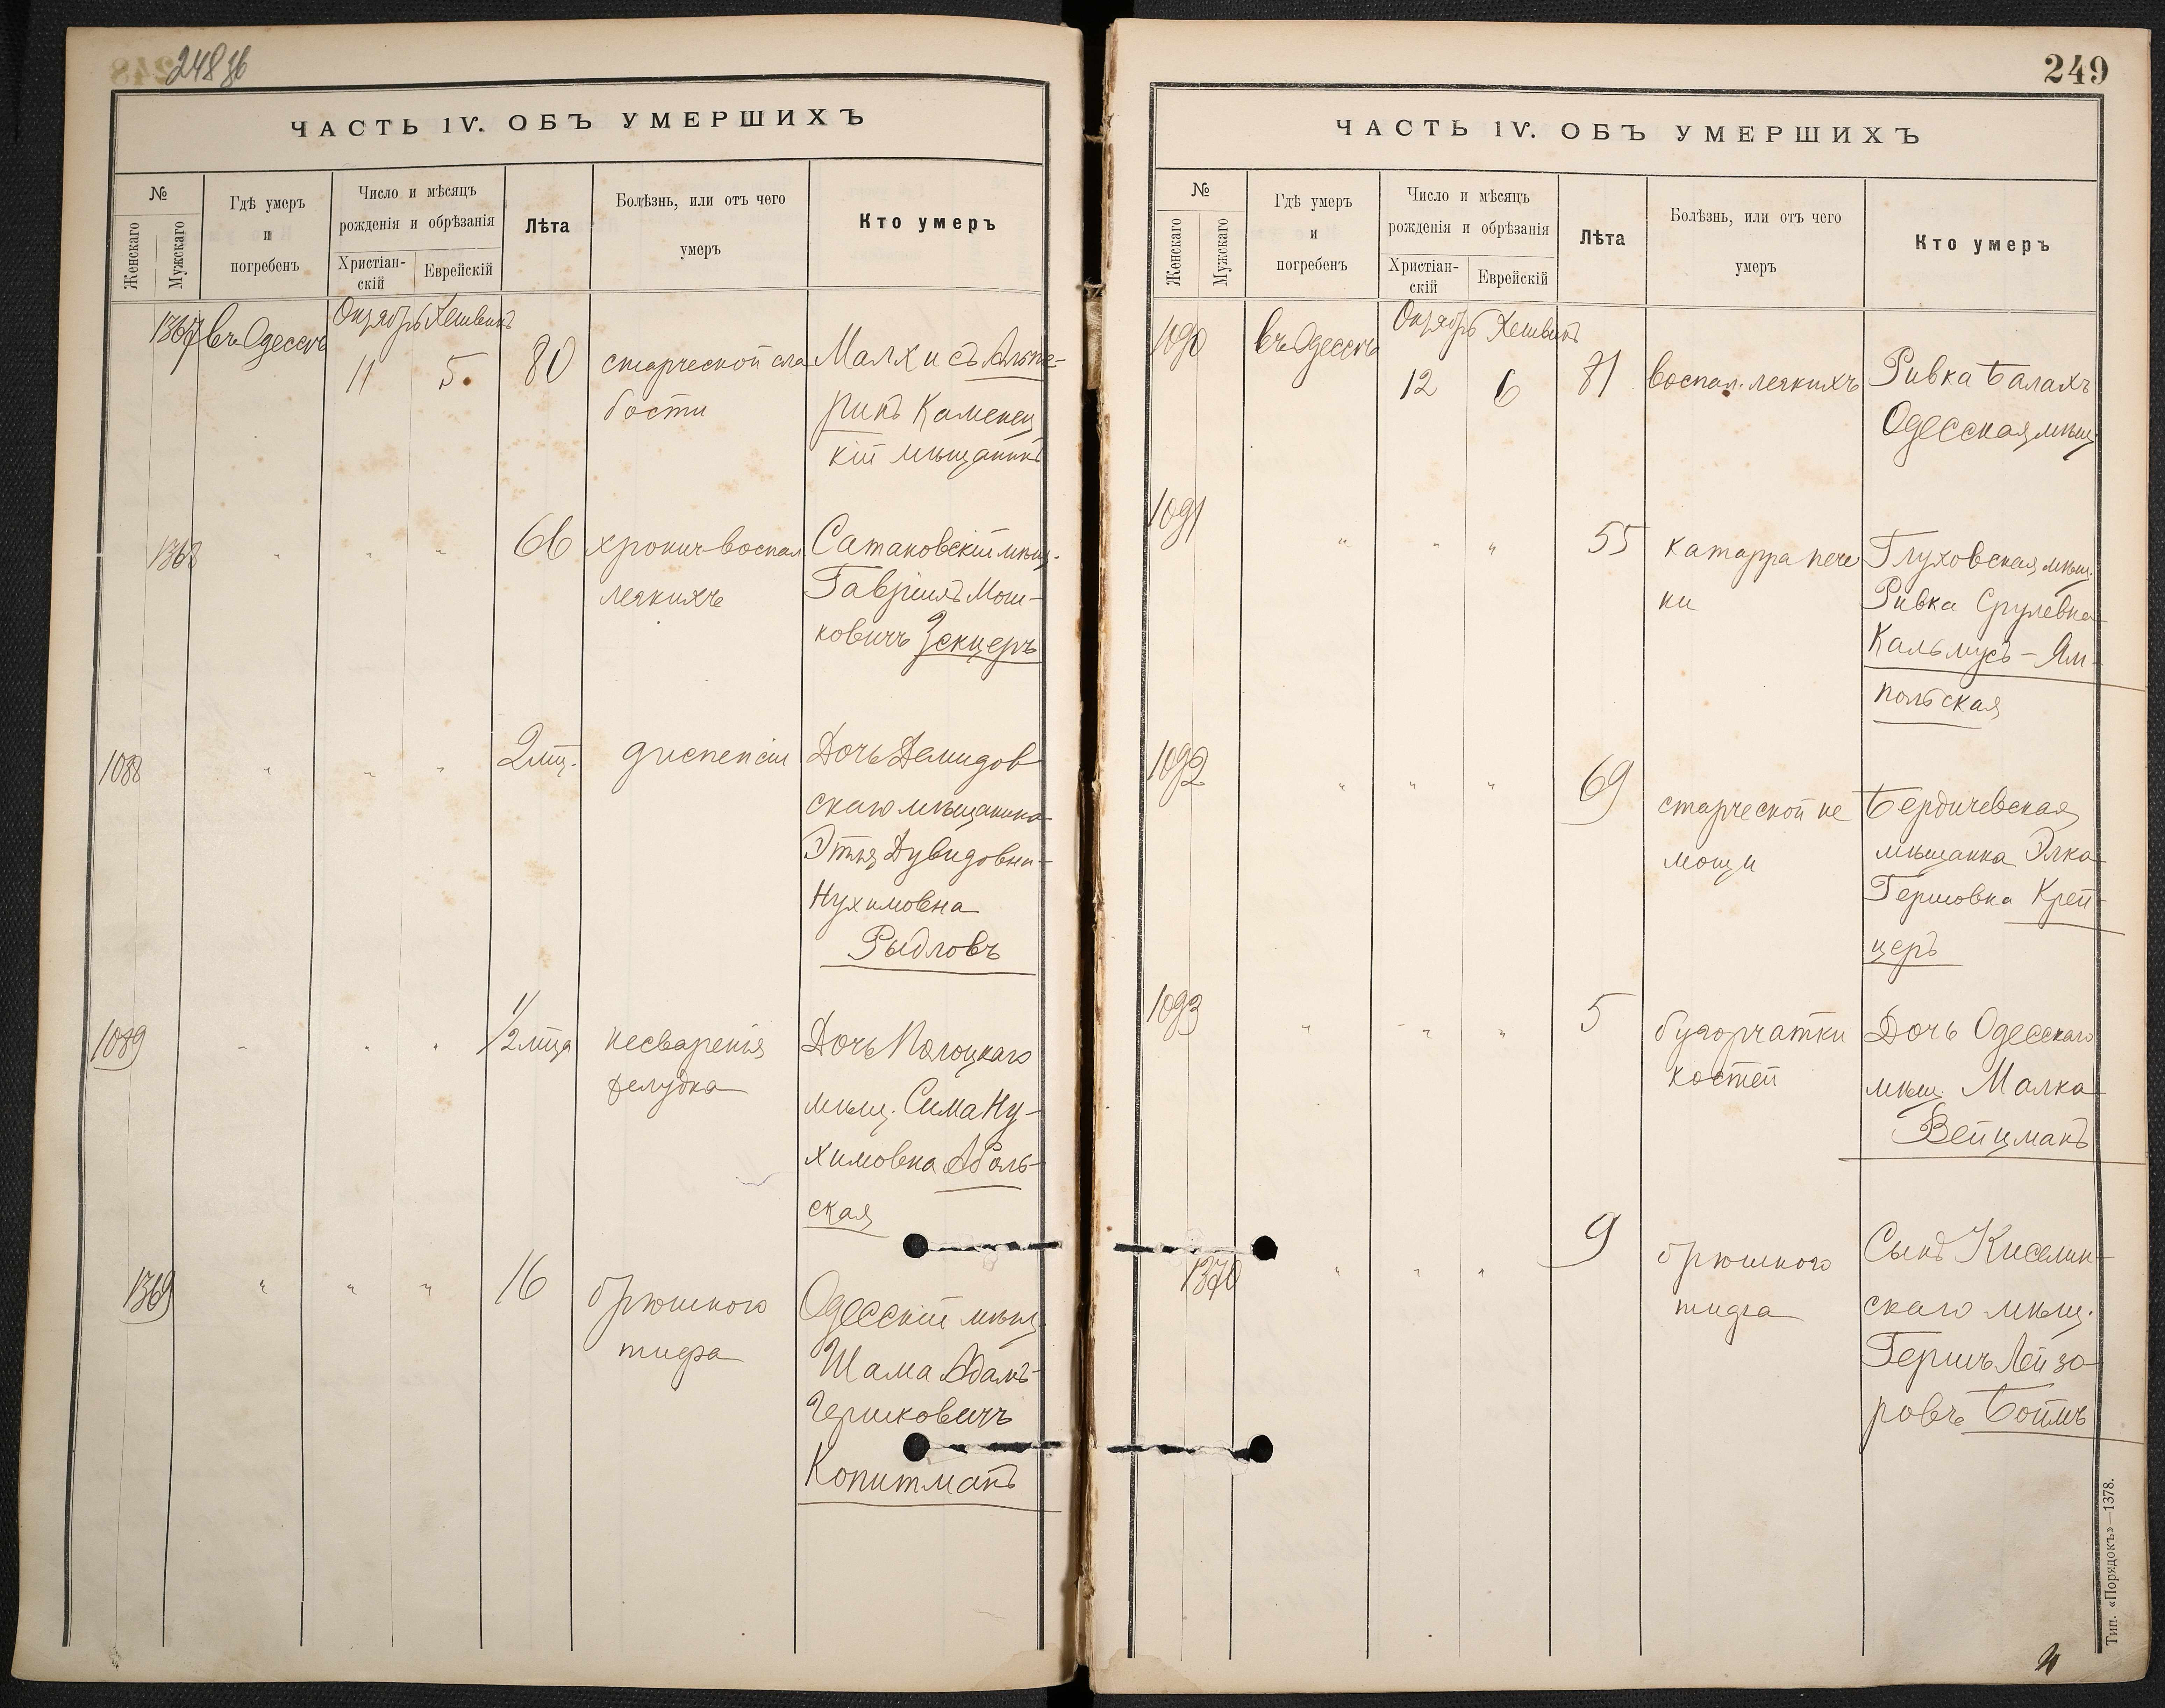 248 об
ЧАСТЬ IV. ОБЪ УМЕРШИХЪ
№
Женскаго
Мужскаго
Гдѣ умеръ
и
погребенъ
Число и мѣсяцъ
рожденія и обрѣзанія
Христіан-
скій
Еврейскій
Лѣта
Болѣзнь, или отъ чего
умеръ
Кто умеръ
1367 въ Одессѣ Октябрь Хешвинъ
11 5. 80 старческой сла Малхисъ Альпе-
бости ринъ Каменец
кій мѣщанинъ
1368 " " " 66 хронич воспал Сатановскій мѣщ.
легкихъ Гавріилъ Мош-
ковичъ Зекцеръ
1088 " " " 2 мц. диспепсіи Дочь Демидов
скаго мѣщанина
Этля Дувидовна-
Нухимовна
Рыдловъ
1089 " " " 1/2 мца несваренія Дочь Полоцкаго
желудка мѣщ. Сима Ну-
химовна Абель-
ская
1369 " " " 16 брюшного Одесскій мѣщ.
тифа Шама Адамъ-
Гершковичъ
Копитманъ
249
ЧАСТЬ IV. ОБЪ УМЕРШИХЪ
№
Женскаго
Мужскаго
Гдѣ умеръ
и
погребенъ
Число и мѣсяцъ
рожденія и обрѣзанія
Христіан-
скій
Еврейскій
Лѣта
Болѣзнь, или отъ чего
умеръ
Кто умеръ
1090 въ Одессѣ Октябрь Хешвинъ
12 6 71 воспал. легкихъ Ривка Балахъ
Одесская мѣщ.
1091 " " " 55 катарра пече Глуховская мѣщ.
ни Ривка Срулевна
Кальмусъ-Ям-
польская
1092 " " " 69 старческой не Бердичевская
мощи мѣщанка Элка
Гершовна Крей-
церъ
1093 " " " 5 бугорчатки Дочь Одесскаго
костей мѣщ. Малка
Вейцманъ
1370 " " " 9 брюшного Сынъ Киселин-
тифа скаго мѣщ.
Гершъ Лейзо
ровъ Боймъ
Тип. «Порядокъ»—1378.